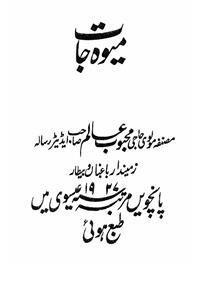 میوہ جات
مصنفہ مولوی حاجی محبوب عالم صاحب ایڈیٹر رسالہ
زمیندار باغبان و بیطار
پانچویں مرتبہ ۱۹۲۷ عیسوی میں
طبع ہوئی